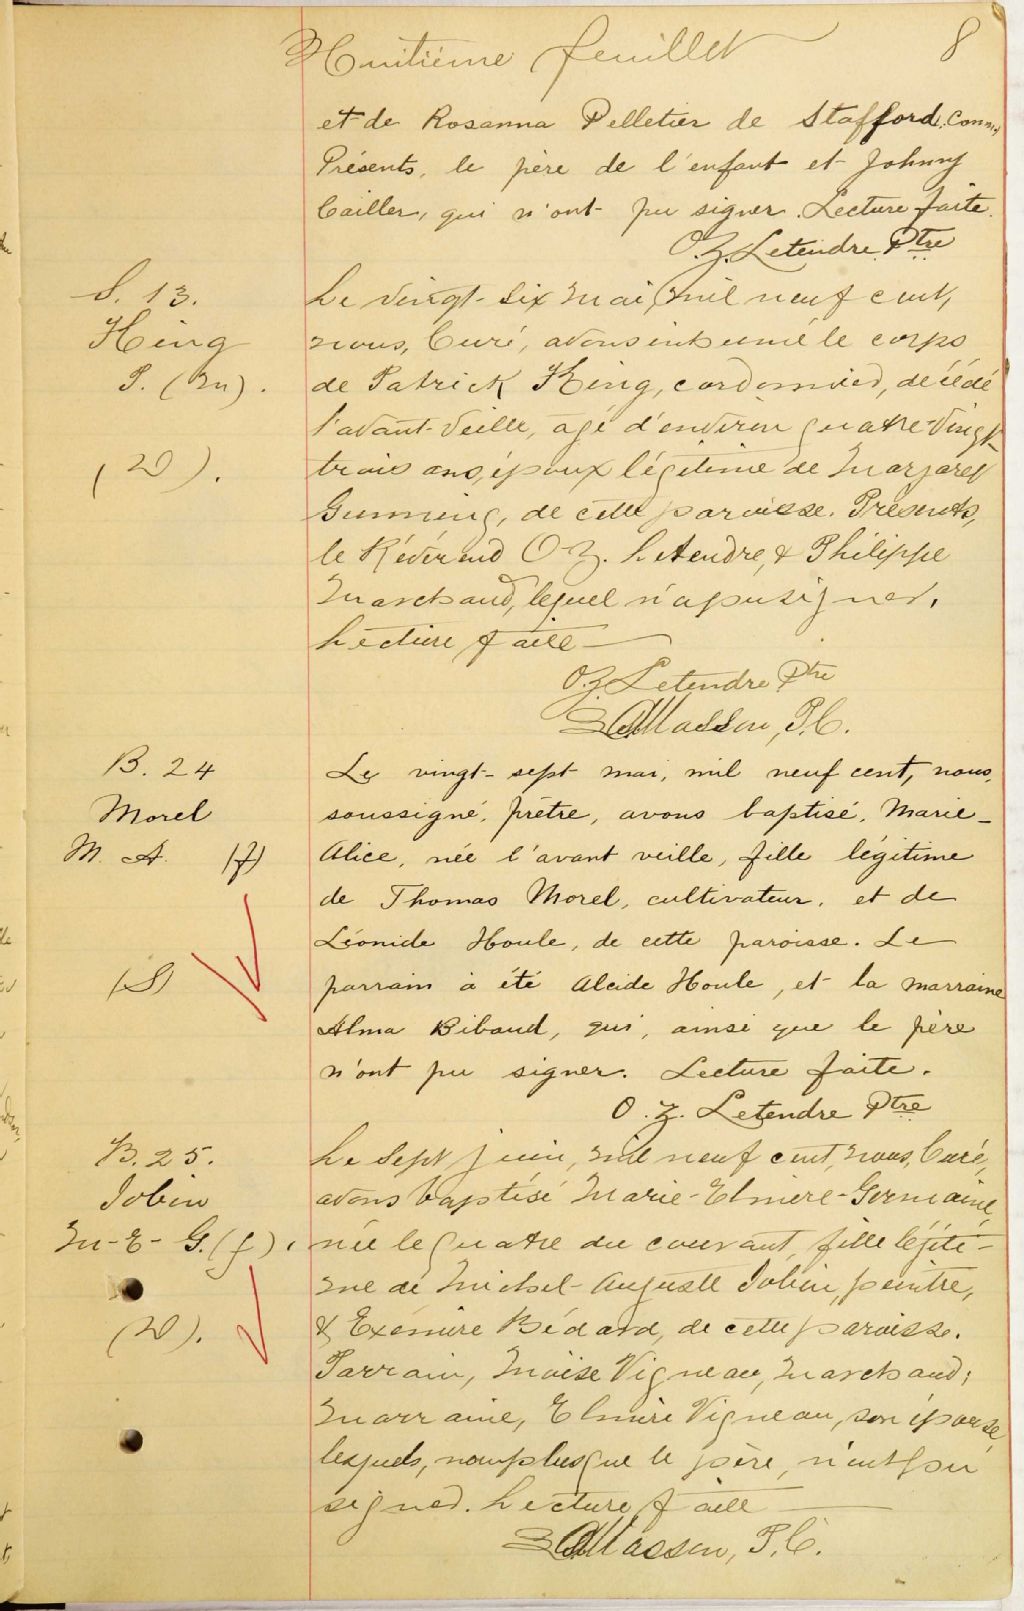 Huitième feuillet 8
et de Rosanna Pelletier de Stafford, Conn.
Présents, le père de l'enfant et Johnny
Cailler, qui n'ont pu signer. Lecture faite.
O. Z. Letendre Ptre
S. 13.
King
P. (m).
(D).
Le vingt-six mai, mil neuf cent,
nous, Curé, avons inhumé le corps
de Patrick King, cordonnier, décédé
l'avant-veille, agé d'environ quatre-vingt-
trois ans, époux légitime de Margaret
Gunning, de cette paroisse. Présents,
le Révérend O. Z. Letendre, & Philippe
Marchand, lequel n'a pu signer.
Lecture faite
O. Z. Letendre Ptre
Masson, P. C.
B. 24
Morel
M. A. (f)
(S)
Le vingt-sept mai, mil neuf cent, nous,
soussigné, prêtre, avons baptisé, Marie-
Alice, née l'avant veille, fille légitime
de Thomas Morel, cultivateur, et de
Léonide Houle, de cette paroisse. Le
parrain a été Alcide Houle, et la marraine
Alma Bibaud, qui, ainsi que le père
n'ont pu signer. Lecture faite.
O. Z. Letendre Ptre
B. 25.
Jobin
M-E-G. (f).
(D).
Le sept juin, mil neuf cent, nous, Curé,
avons baptisé Marie-Elmire-Germaine,
née le quatre du courant, fille légiti-
me de Michel-Auguste Jobin, peintre,
& Exémire Bédard, de cette paroisse.
Parrain, Moïse Vigneau, marchand;
Marraine, Elmire Vigneau, son épouse,
lesquels, non plus que le père, n'ont pu
signer. Lecture faite
Masson, P. C.